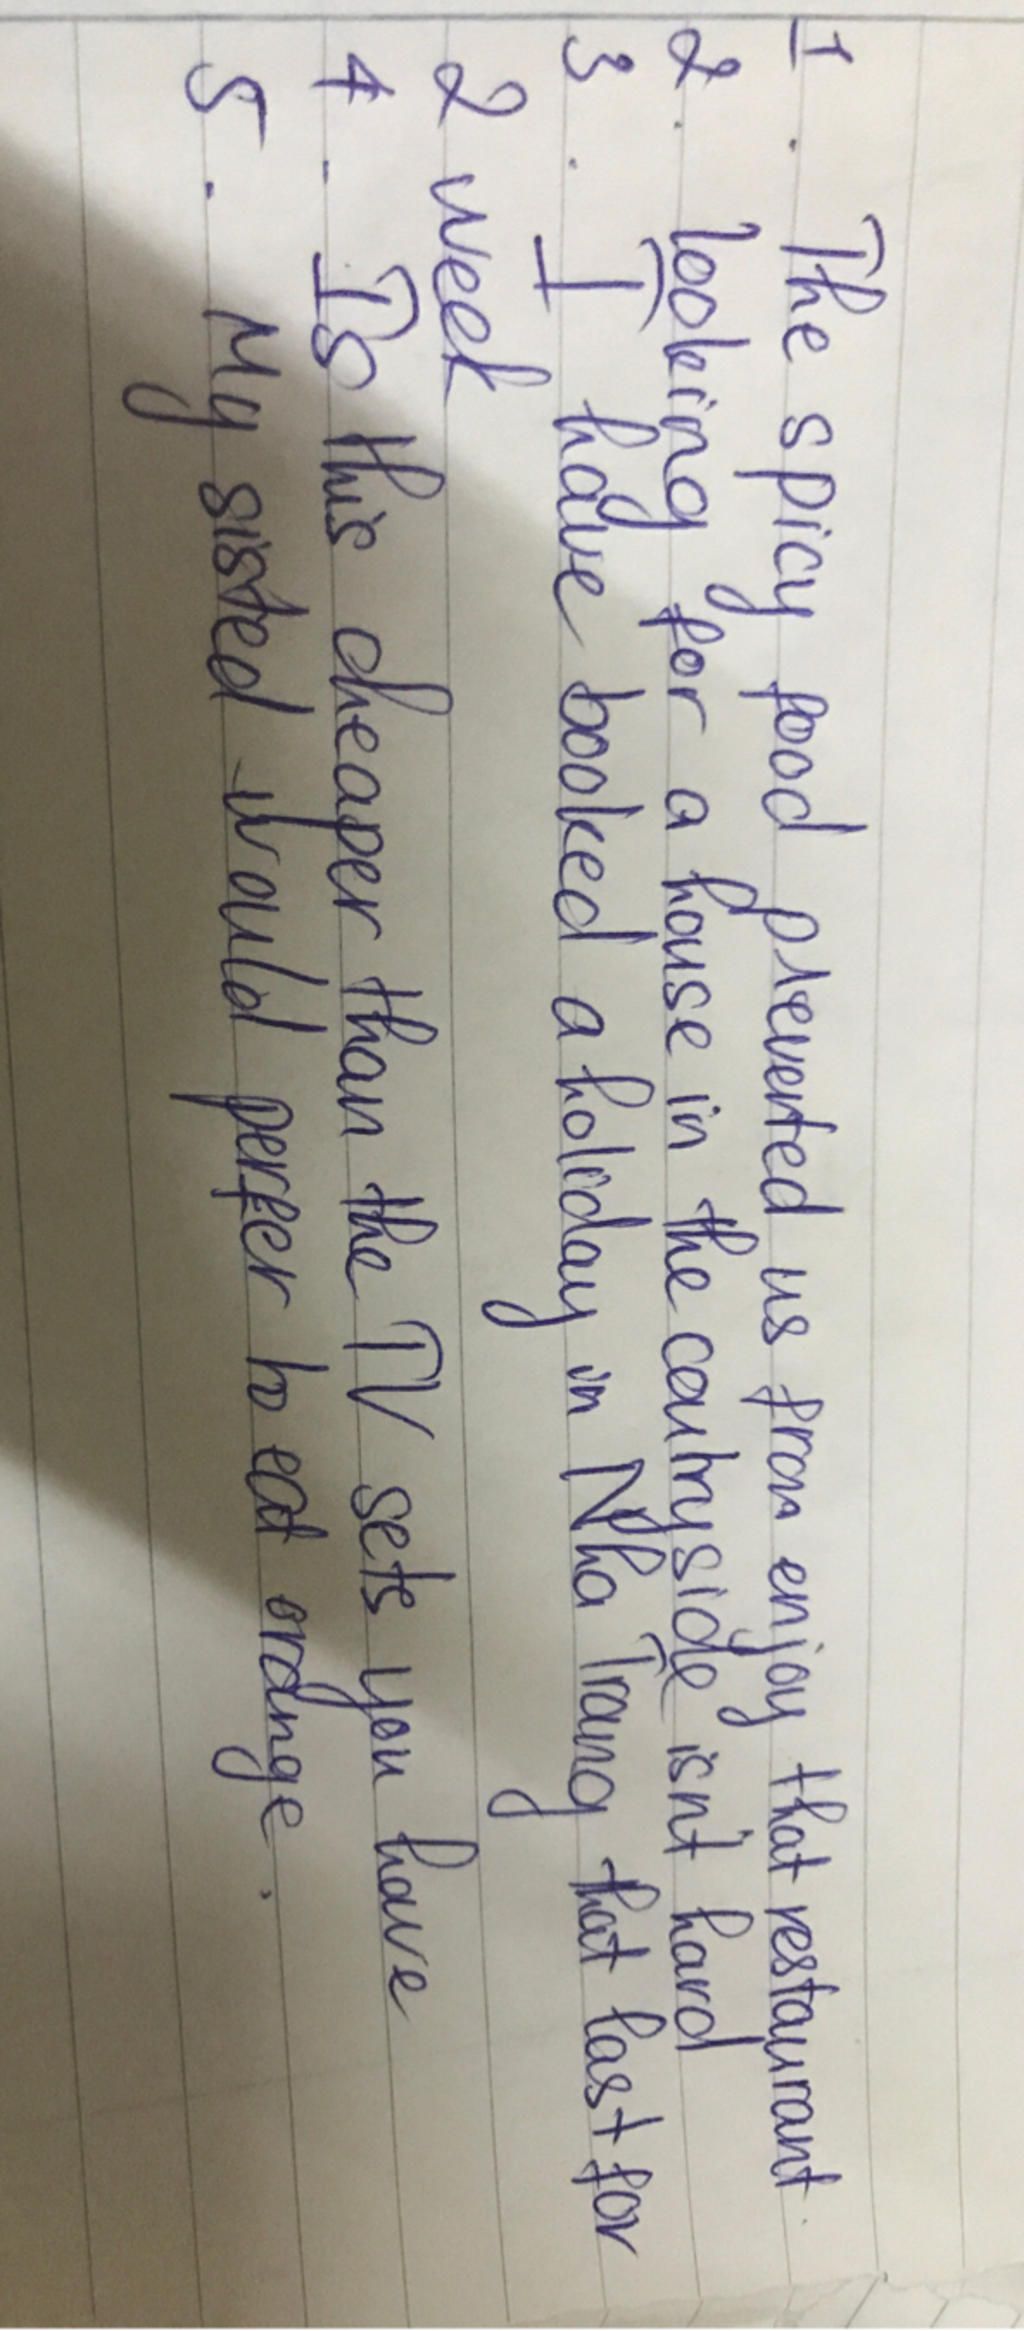 1. The spicy food prevented us from enjoy that restaurant.
2. looking for a house in the coutryside isn't hard
3. I have booked a holiday in Nha Trang that last for
2 week
4. Is this cheaper than the TV sets you have
5. My sisted would perfer to eat orange.